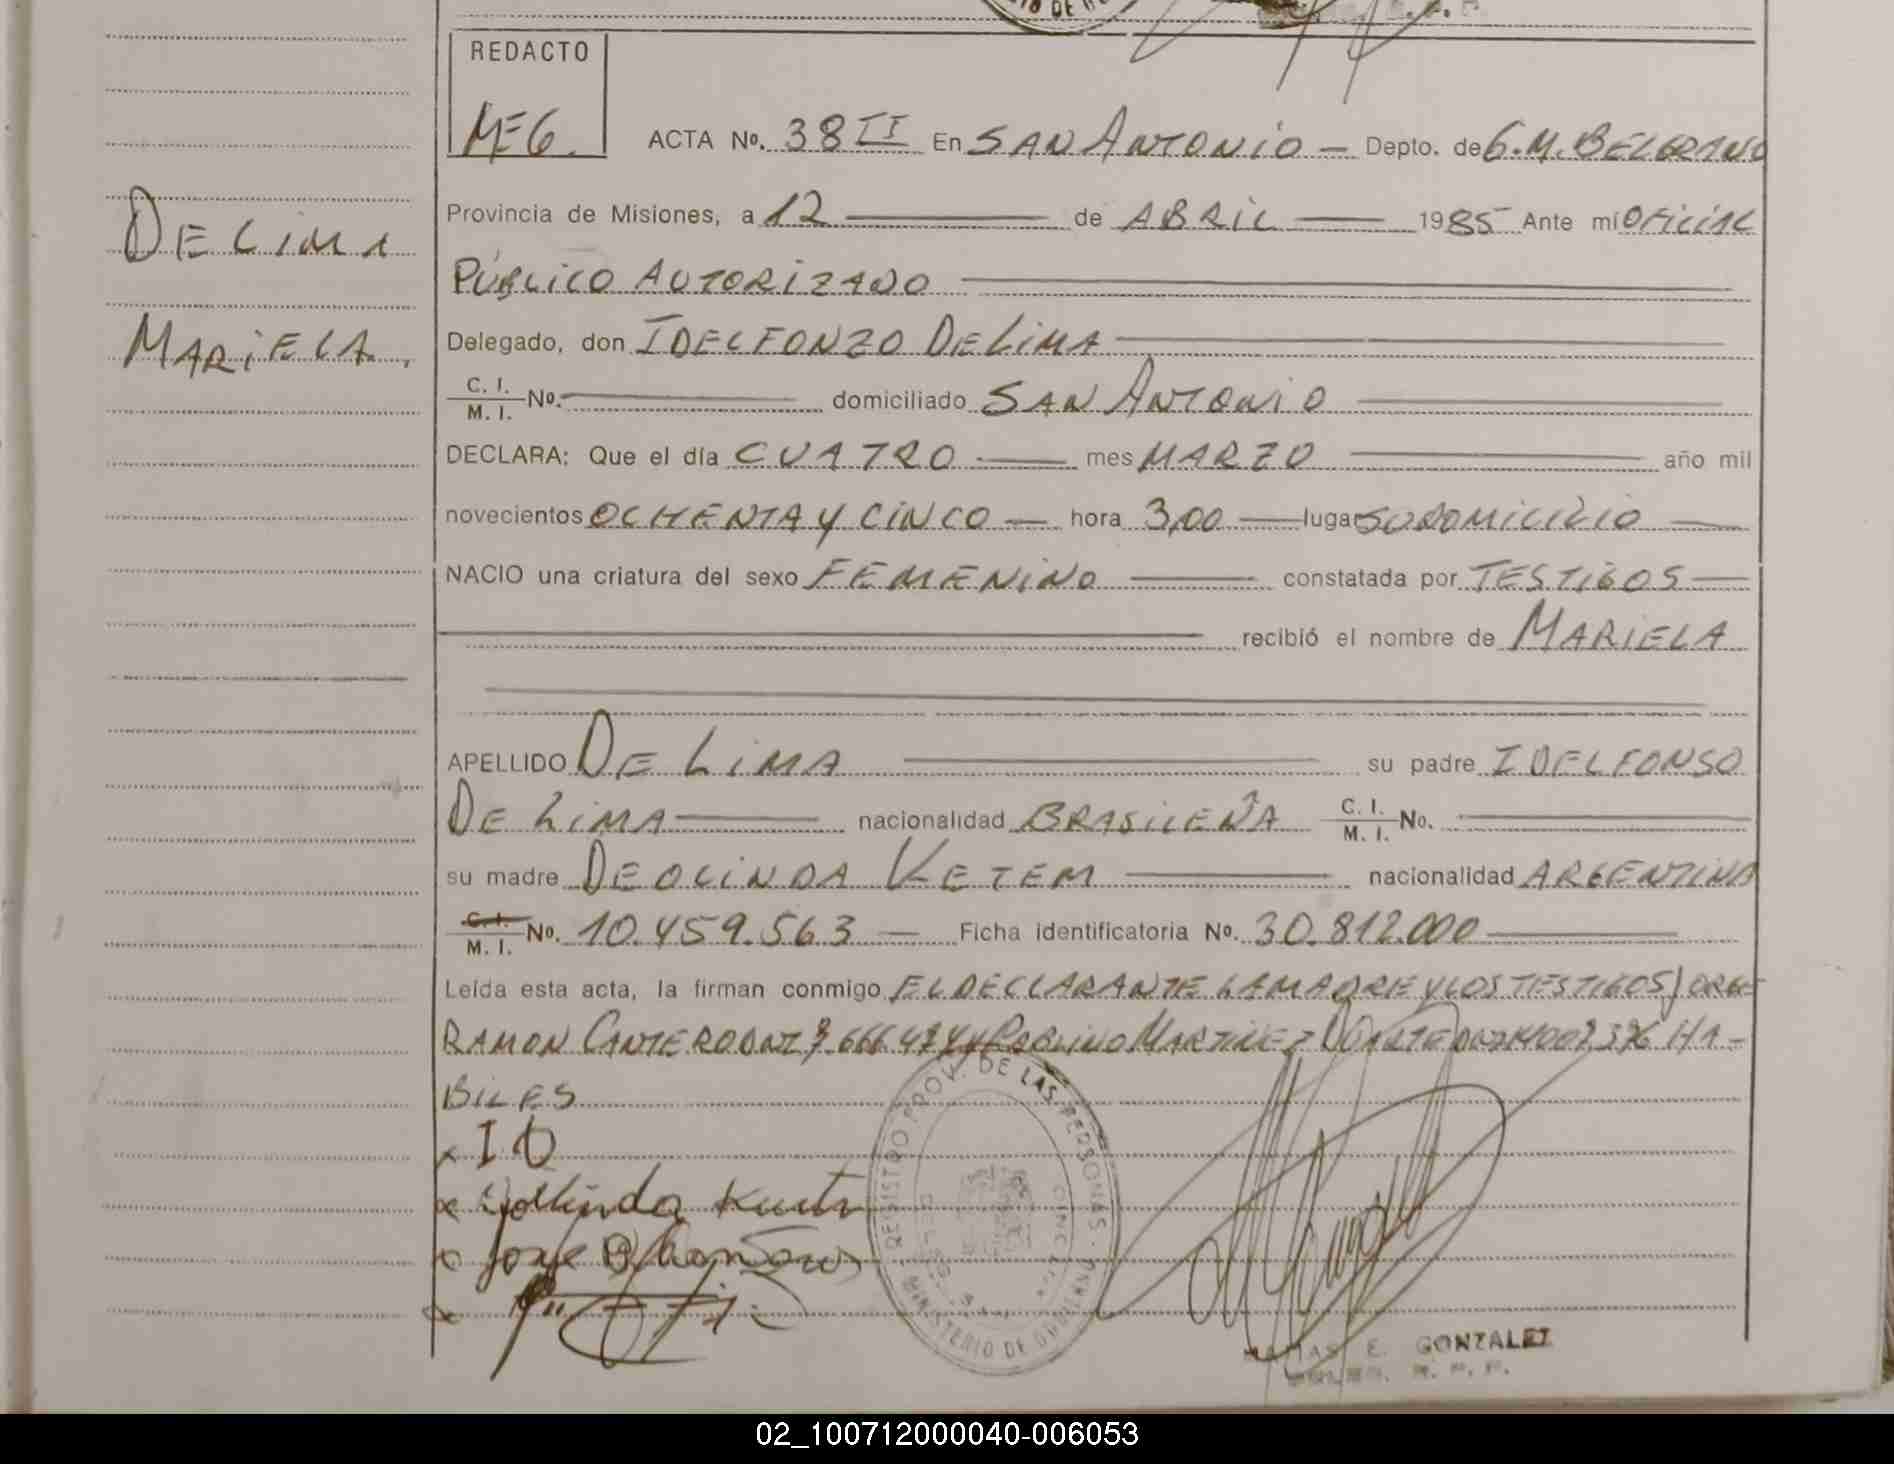 REDACTO
MEG.
ACTA No. 38 II En SAN ANTONIO — Depto. de G.M. BELGRANO
DE LIMA
Provincia de Misiones, a 12 — de ABRIL — 1985 Ante mí OFICIAL
PÚBLICO AUTORIZADO
MARIELA.
Delegado, don IDELFONZO DE LIMA
C. I.
M. I. No. — domiciliado SAN ANTONIO
DECLARA: Que el día CUATRO — mes MARZO — año mil
novecientos OCHENTA Y CINCO — hora 3,00 — lugar SU DOMICILIO —
NACIO una criatura del sexo FEMENINO — constatada por TESTIGOS —
recibió el nombre de MARIELA
APELLIDO DE LIMA — su padre IDELFONSO
DE LIMA — nacionalidad BRASILEÑA C. I. M. I. No. —
su madre DEOLINDA KETEM — nacionalidad ARGENTINA
C. I. M. I. No. 10.459.563 — Ficha identificatoria No. 30.812.000 —
Leída esta acta, la firman conmigo EL DECLARANTE LA MADRE Y LOS TESTIGOS JORGE
RAMON CANTERO MARTINEZ HA-
BILES
x I D
REGISTRO PROV. DE LAS PERSONAS
MINISTERIO DE GOBIERNO
E. GONZALEZ
02_100712000040-006053